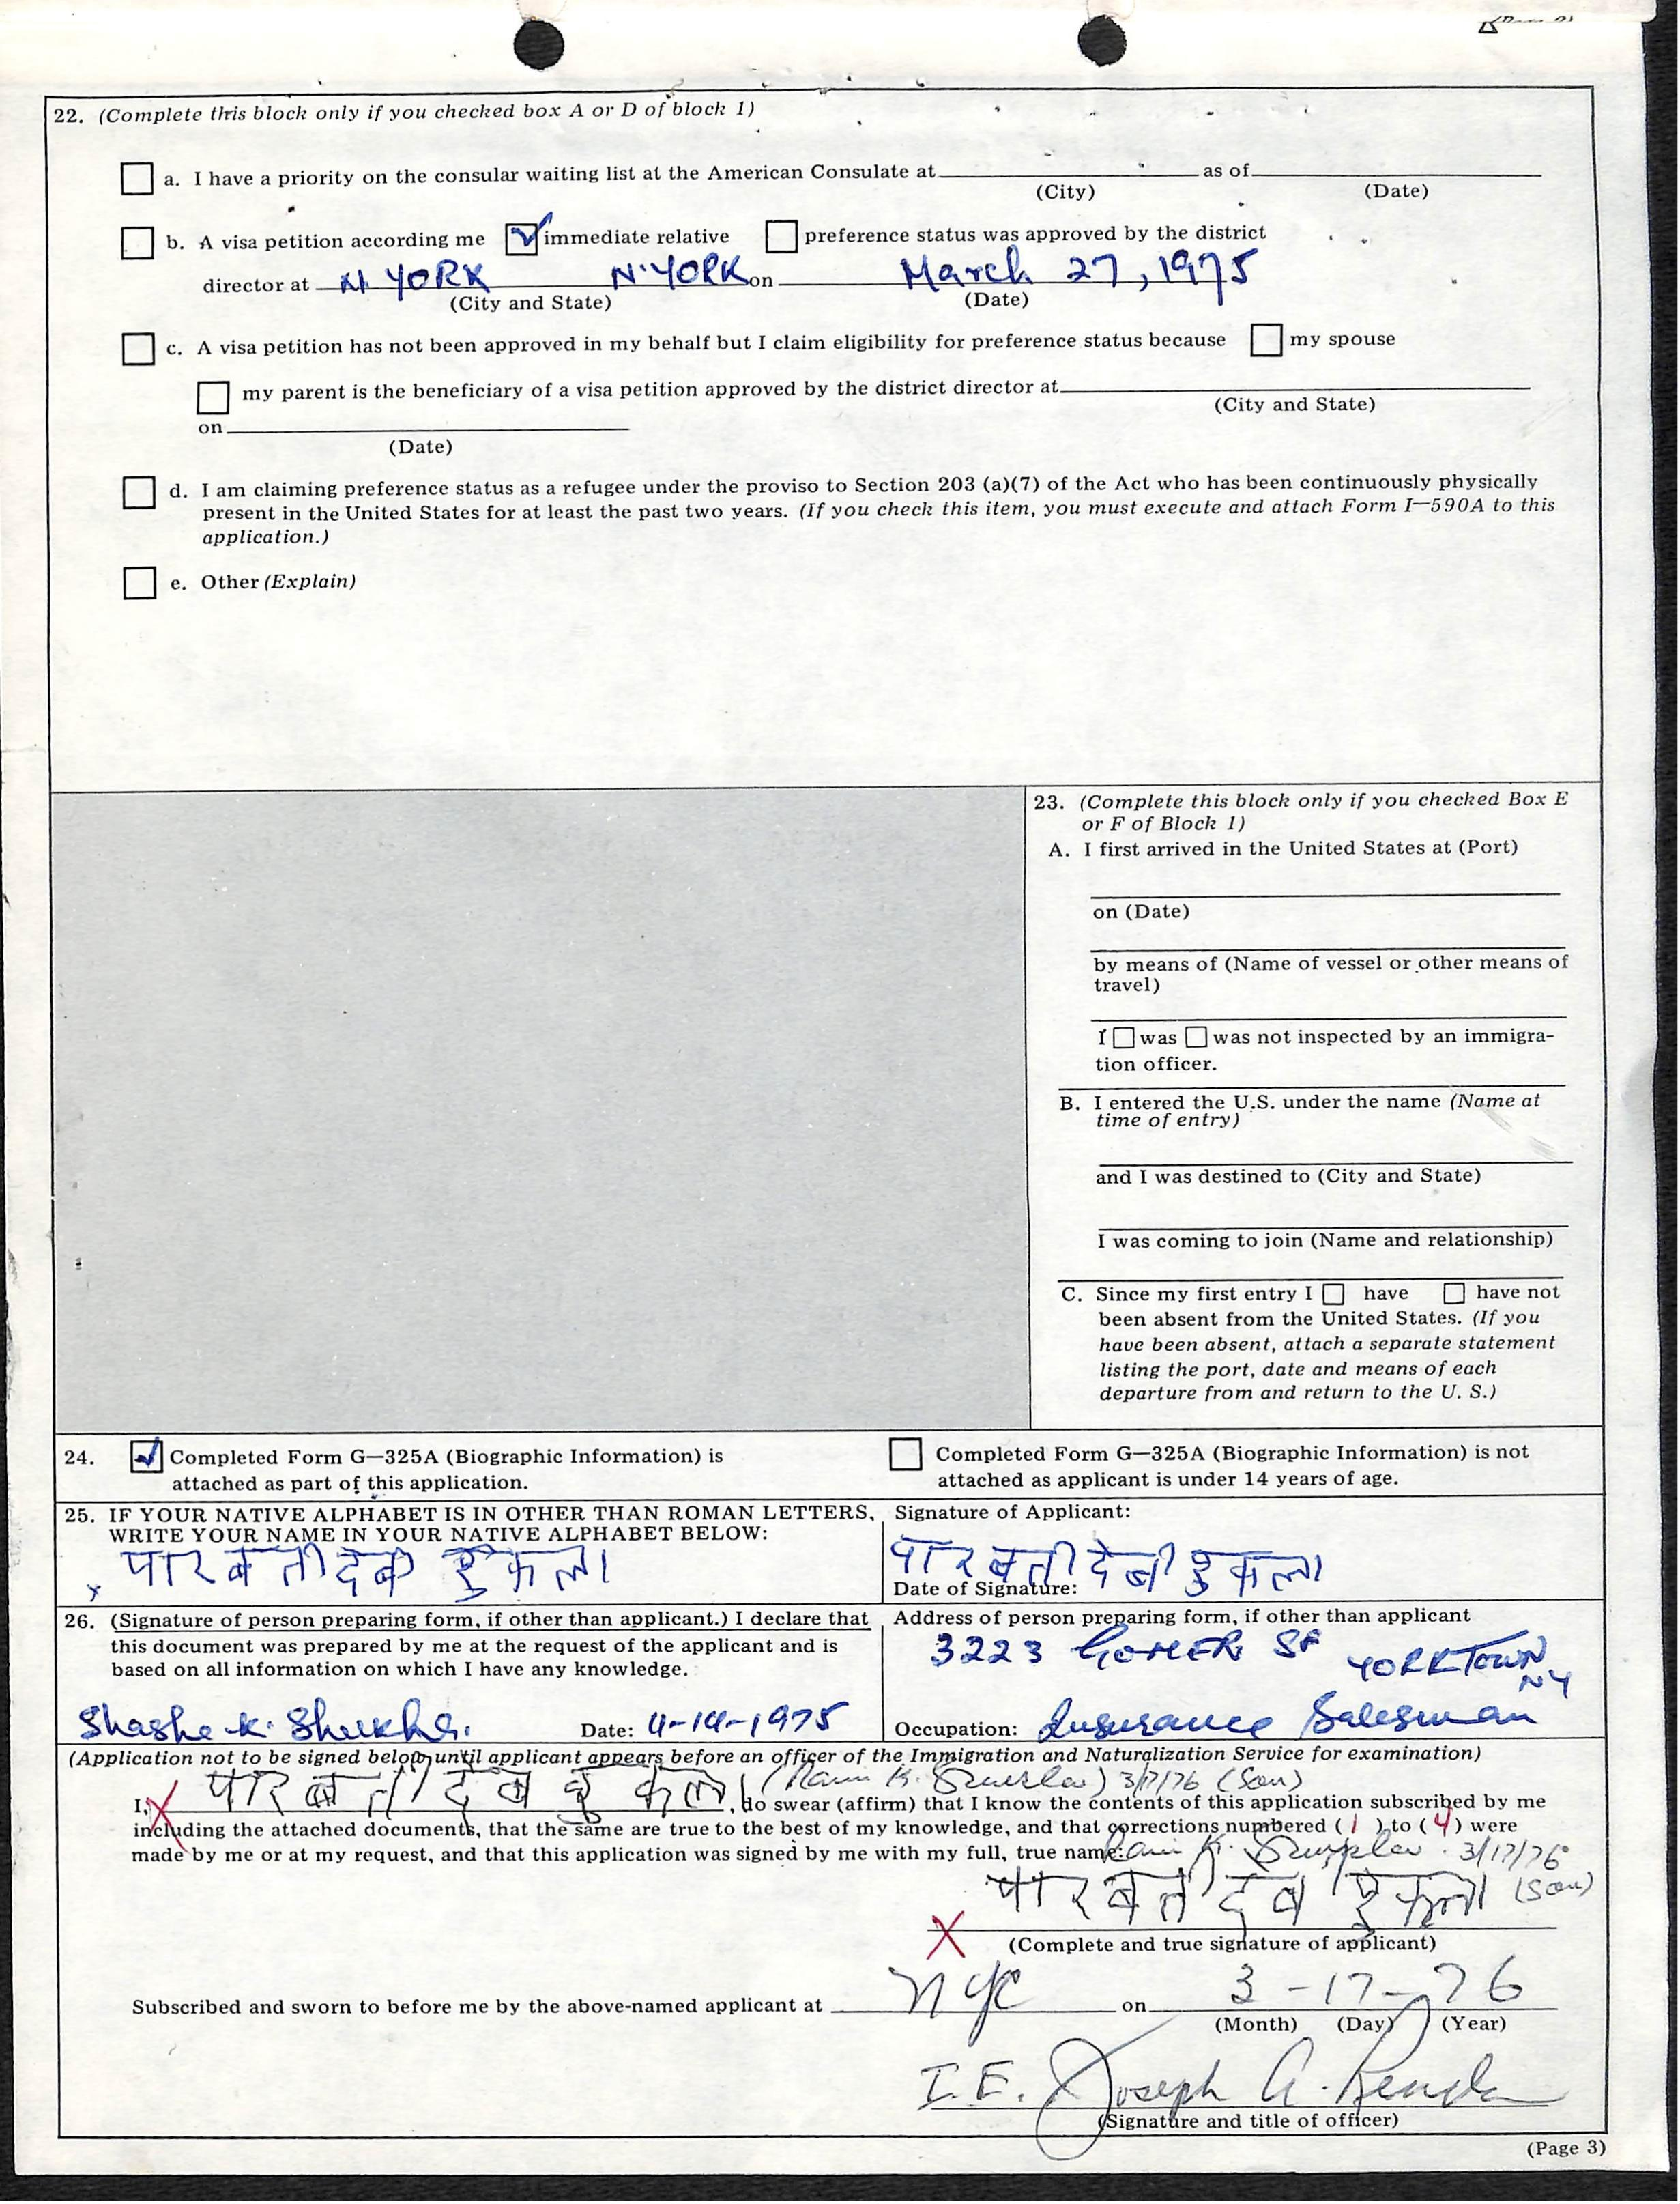 22. (Complete this block only if you checked box A or D of block 1)
a. I have a priority on the consular waiting list at the American Consulate at as of
(City) (Date)
b. A visa petition according me immediate relative preference status was approved by the district
director at N YORK N.YORK on March 27, 1975
(City and State) (Date)
c. A visa petition has not been approved in my behalf but I claim eligibility for preference status because my spouse
my parent is the beneficiary of a visa petition approved by the district director at
(City and State)
on
(Date)
d. I am claiming preference status as a refugee under the proviso to Section 203 (a)(7) of the Act who has been continuously physically
present in the United States for at least the past two years. (If you check this item, you must execute and attach Form I—590A to this
application.)
e. Other (Explain)
23. (Complete this block only if you checked Box E
or F of Block 1)
A. I first arrived in the United States at (Port)
on (Date)
by means of (Name of vessel or other means of
travel)
I was was not inspected by an immigra-
tion officer.
B. I entered the U.S. under the name (Name at
time of entry)
and I was destined to (City and State)
I was coming to join (Name and relationship)
C. Since my first entry I have have not
been absent from the United States. (If you
have been absent, attach a separate statement
listing the port, date and means of each
departure from and return to the U. S.)
24. Completed Form G—325A (Biographic Information) is
attached as part of this application.
Completed Form G—325A (Biographic Information) is not
attached as applicant is under 14 years of age.
25. IF YOUR NATIVE ALPHABET IS IN OTHER THAN ROMAN LETTERS,
WRITE YOUR NAME IN YOUR NATIVE ALPHABET BELOW:
x पारबती देबी शुकला
Signature of Applicant:
पारबती देबी शुकला
Date of Signature:
26. (Signature of person preparing form, if other than applicant.) I declare that
this document was prepared by me at the request of the applicant and is
based on all information on which I have any knowledge.
Shashe K. Shukla. Date: 4-14-1975
Address of person preparing form, if other than applicant
3223 GOMER St YORKTOWN
NY
Occupation: Insurance Salesman
(Application not to be signed below until applicant appears before an officer of the Immigration and Naturalization Service for examination)
पारबती देब शुकला 3/17/76 (Son)
I, X , do swear (affirm) that I know the contents of this application subscribed by me
including the attached documents, that the same are true to the best of my knowledge, and that corrections numbered ( 1 ) to ( 4 ) were
made by me or at my request, and that this application was signed by me with my full, true name: 3/17/76
पारबती देब शुकला (Son)
X
(Complete and true signature of applicant)
Subscribed and sworn to before me by the above-named applicant at NYC on 3-17-76
(Month) (Day) (Year)
I.E. Joseph A.
(Signature and title of officer)
(Page 3)